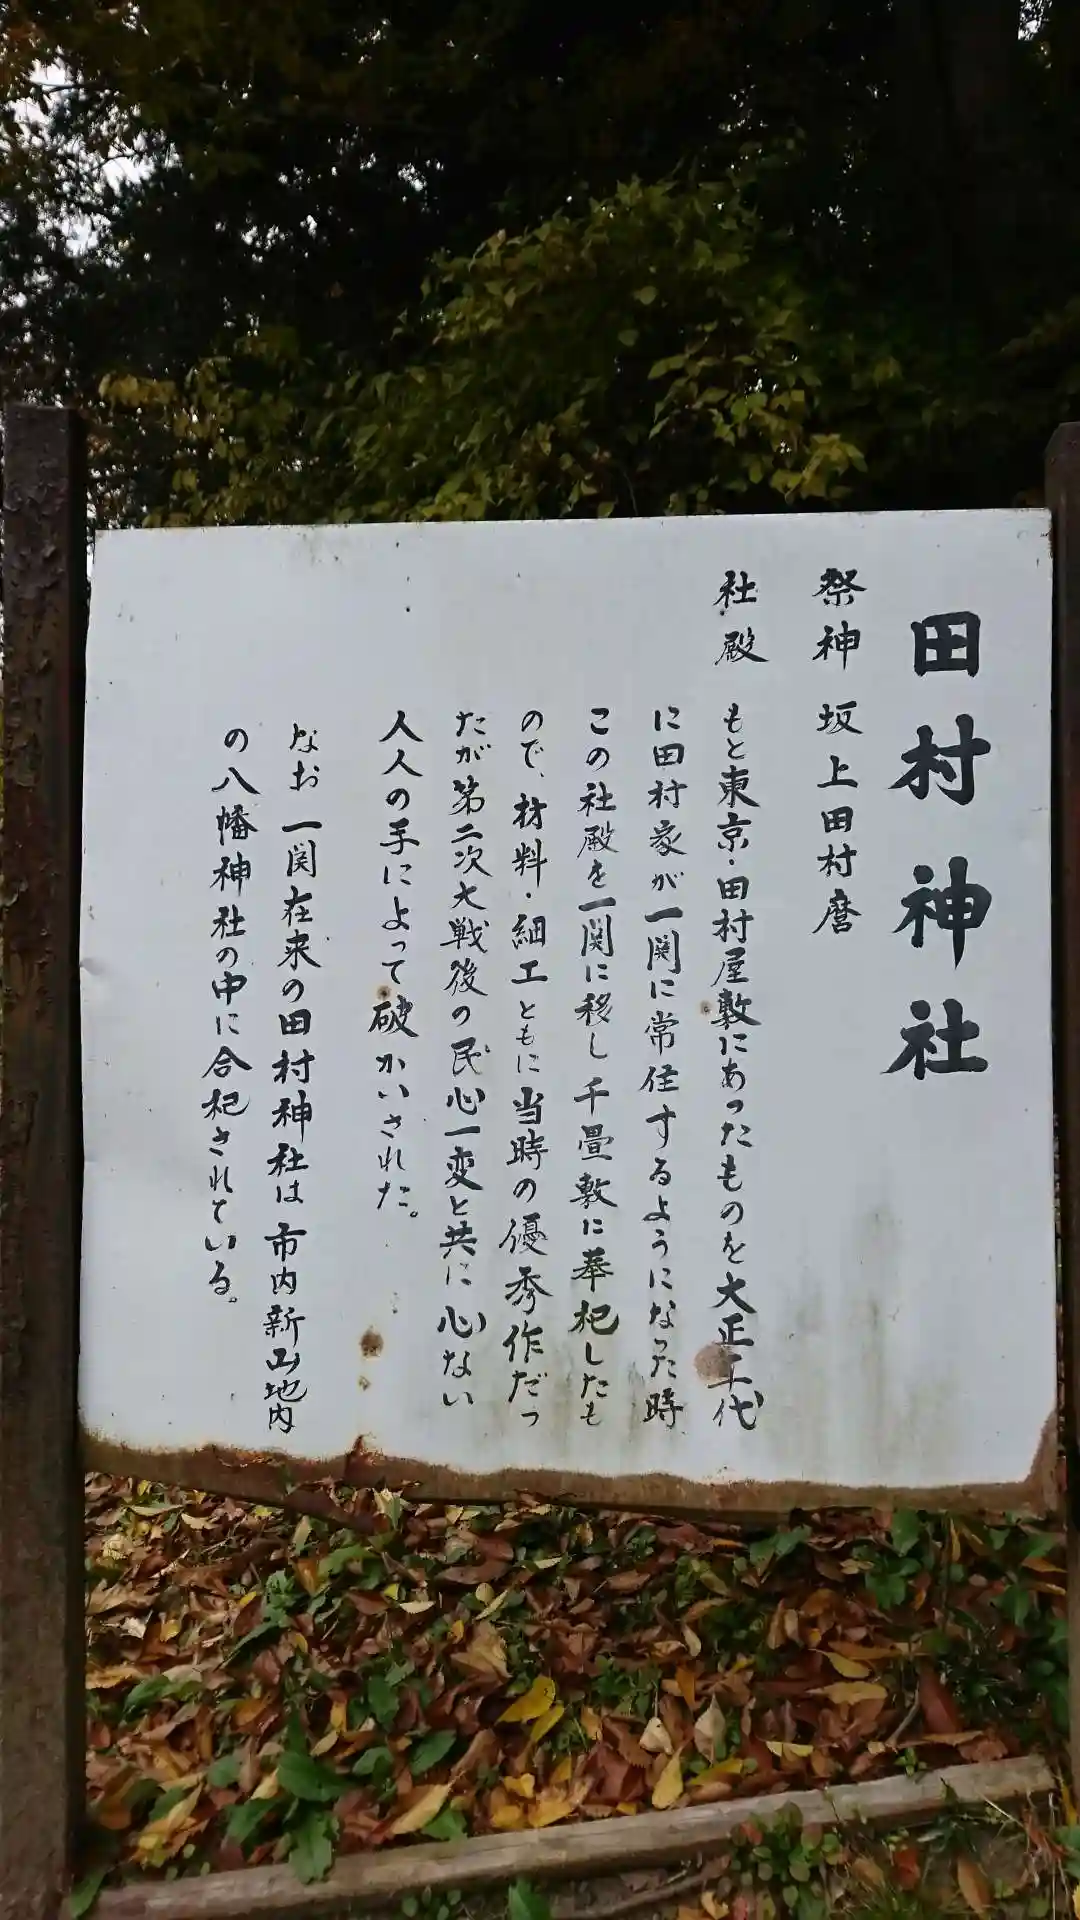 田村神社
祭神 坂上田村麿
社殿 もと東京・田村屋敷にあったものを大正 代
に田村家が一関に常住するようになった時
この社殿を一関に移し千畳敷に奉祀したも
ので、材料・細工ともに当時の優秀作だっ
たが第二次大戦後の民心一変と共に心ない
人人の手によって破かいされた。
なお一関在来の田村神社は市内新山地内
の八幡神社の中に合祀されている。